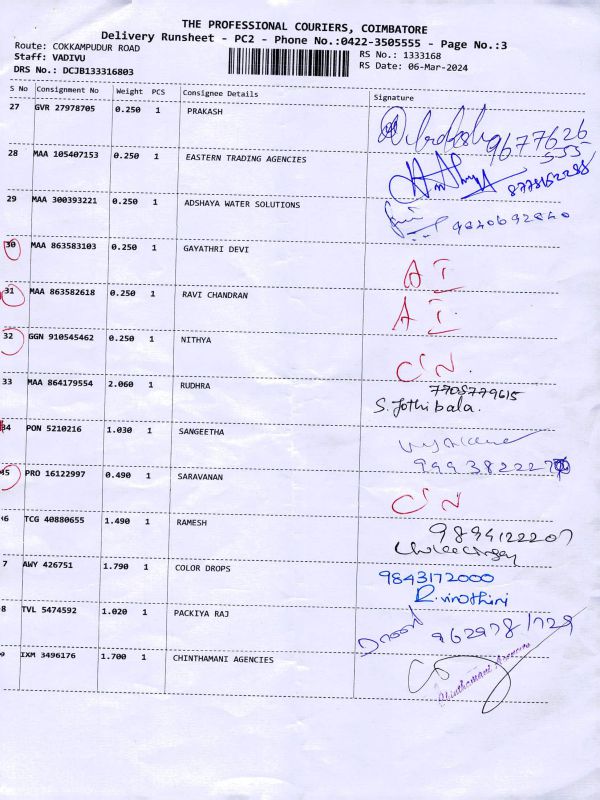 THE PROFESSIONAL COURIERS, COIMBATORE
Delivery Runsheet - PC2 - Phone No.:0422-3505555 - Page No.:3
Route: COKKAMPUDUR ROAD RS No.: 1333168
Staff: VADIVU RS Date: 06-Mar-2024
DRS No.: DCJB133316803
S No Consignment No Weight PCS Consignee Details Signature
27 GVR 27978705 0.250 1 PRAKASH
9677626
555
28 MAA 105407153 0.250 1 EASTERN TRADING AGENCIES
29 MAA 300393221 0.250 1 ADSHAYA WATER SOLUTIONS
30 MAA 863583103 0.250 1 GAYATHRI DEVI A I
31 MAA 863582618 0.250 1 RAVI CHANDRAN A I.
32 GGN 910545462 0.250 1 NITHYA C/N.
33 MAA 864179554 2.060 1 RUDHRA 7708779615
S. Jothibala.
34 PON 5210216 1.030 1 SANGEETHA
35 PRO 16122997 0.490 1 SARAVANAN C/N
6 TCG 40880655 1.490 1 RAMESH
7 AWY 426751 1.790 1 COLOR DROPS 9843172000
R. Vinothini
8 TVL 5474592 1.020 1 PACKIYA RAJ 9629781729
9 IXM 3496176 1.700 1 CHINTHAMANI AGENCIES
Chinthamani Agencies